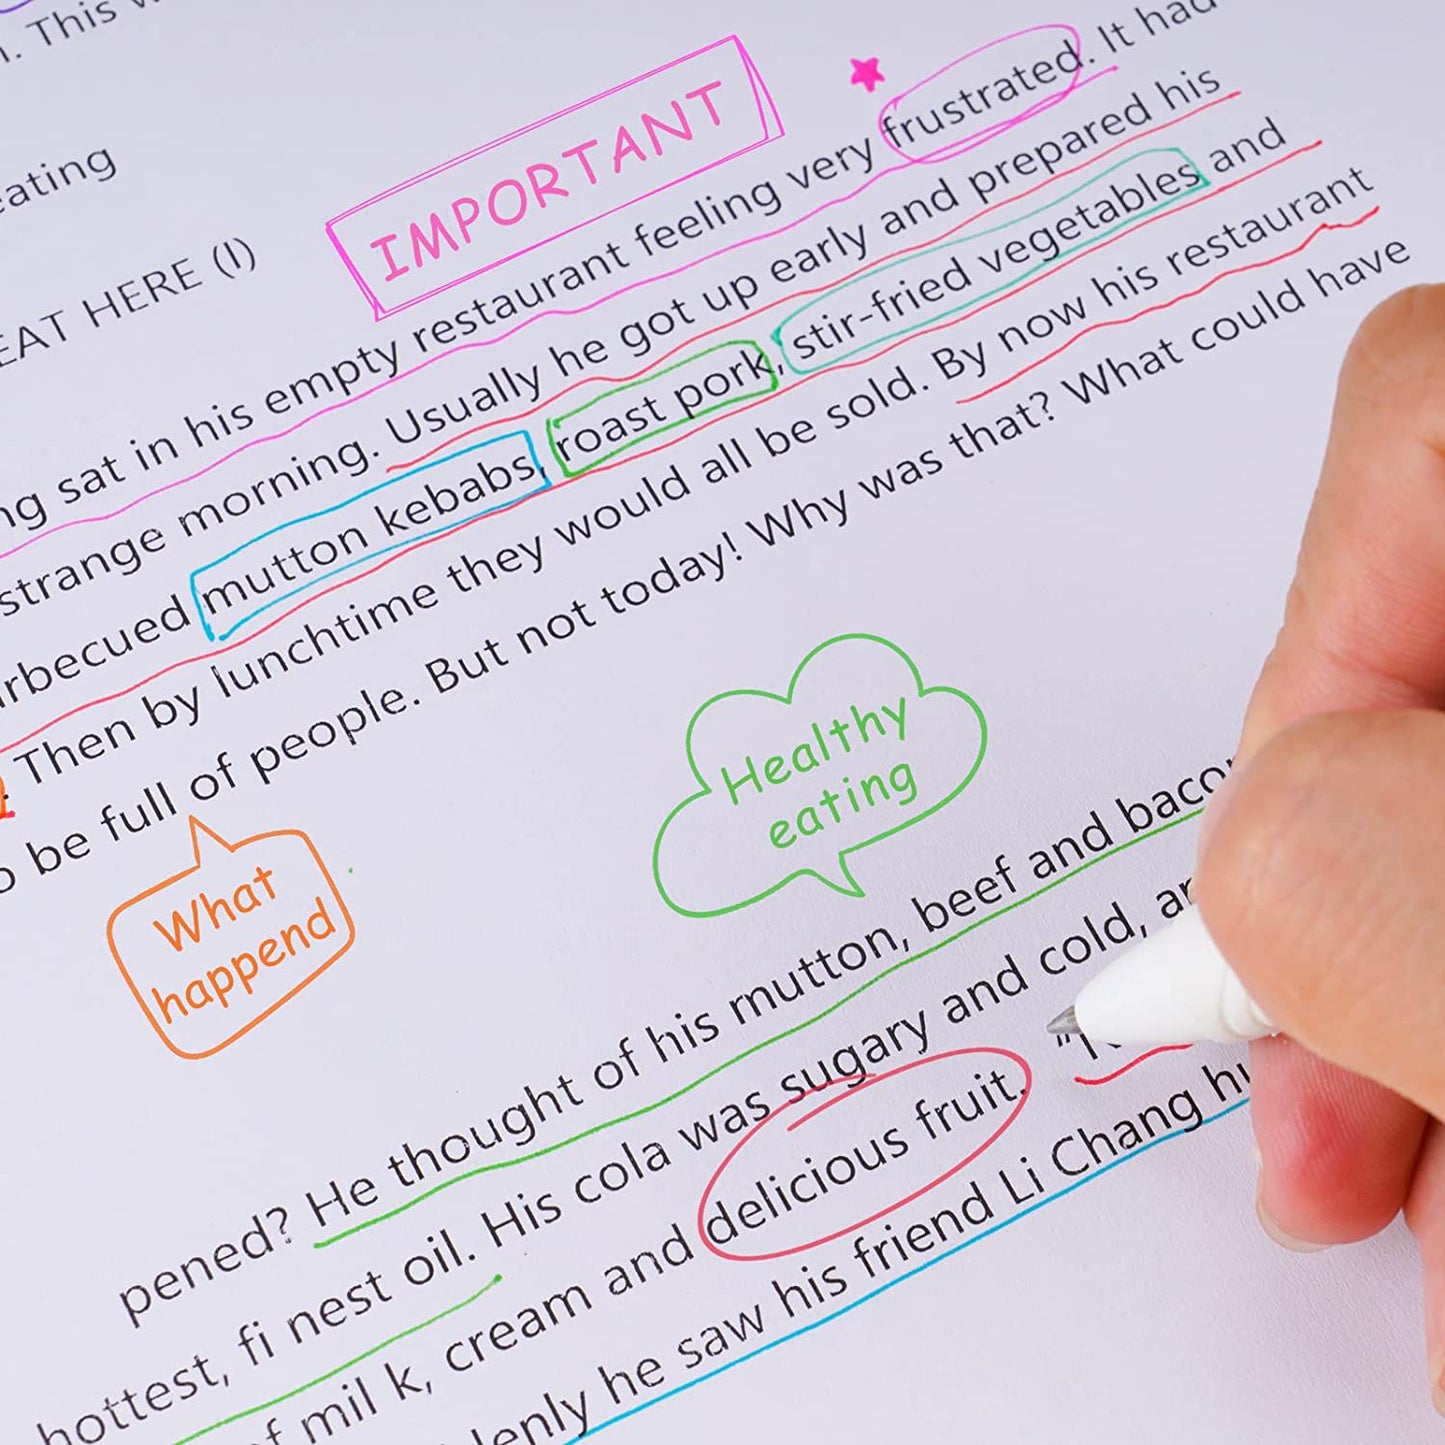 . This
eating
EAT HERE (I)
IMPORTANT
ng sat in his empty restaurant feeling very frustrated. It had
strange morning. Usually he got up early and prepared his
rbecued mutton kebabs, roast pork, stir-fried vegetables and
. Then by lunchtime they would all be sold. By now his restaurant
o be full of people. But not today! Why was that? What could have
What
happend
Healthy
eating
pened? He thought of his mutton, beef and bacon
hottest, fi nest oil. His cola was sugary and cold, an
of mil k, cream and delicious fruit. "I
denly he saw his friend Li Chang hu